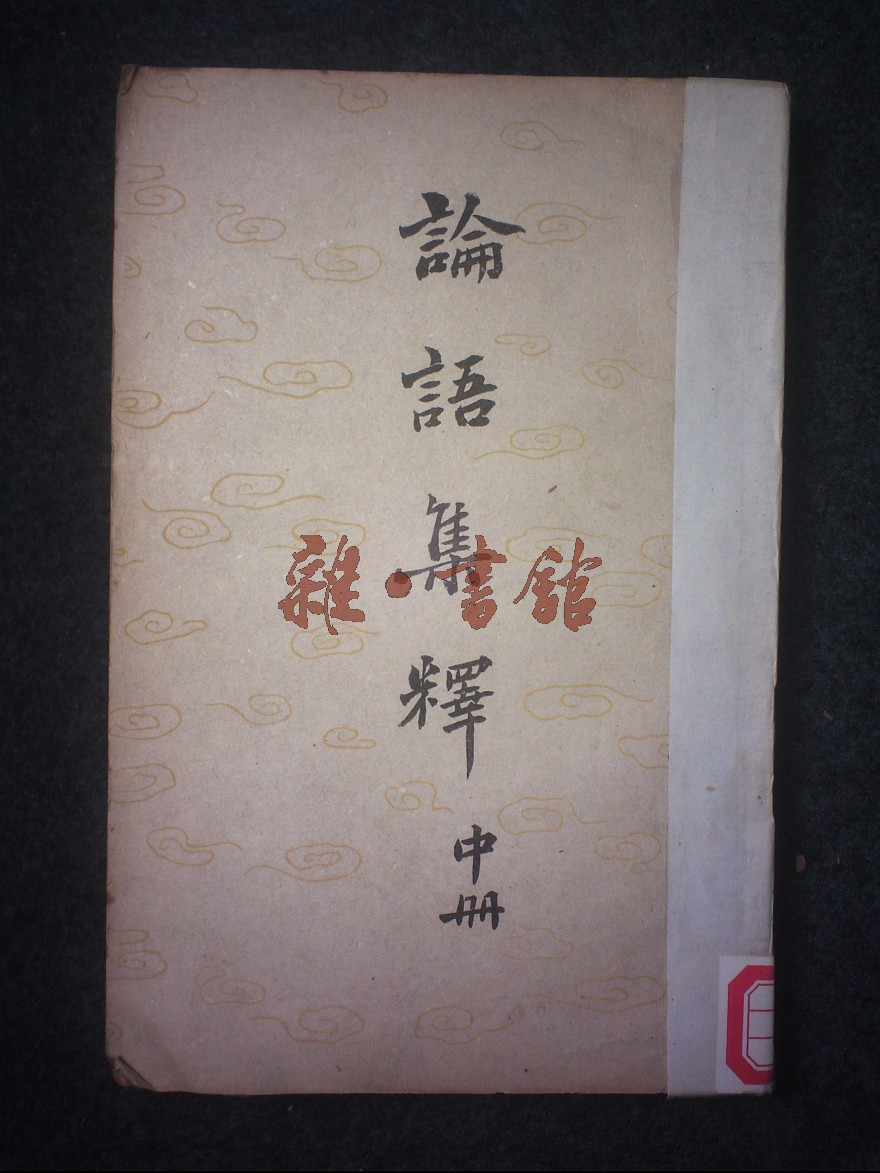 論語集釋
中册
雜·書館